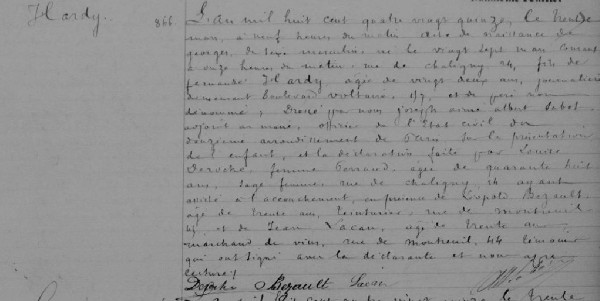 Hardy. 866 L'an mil huit cent quatre vingt quinze, le trente
mars, à neuf heures du matin acte de naissance de
georges, du sexe masculin né le vingt sept mars courant
à onze heures du matin, rue de chaligny 24, fils de
fernande Hardy, agée de vingt deux ans, journalière
demeurant boulevard voltaire, 117, et de père non
dénommé; Dressé par nous joseph aimé albert
adjoint au maire, officier de l'Etat civil du
douzième arrondissement de Paris sur la présentation
de l'enfant, et la déclaration faite par Louise
femme agée de quarante huit
ans, sage femme rue de chaligny, 24 ayant
assisté à l'accouchement, en présence de Léopold Bezault
agé de trente ans, teinturier, rue de montreuil
et de Jean Lacau, agé de trente ans
marchand de vins, rue de montreuil, 44 témoins
qui ont signé avec la déclarante et nous après
lecture;
Bezault